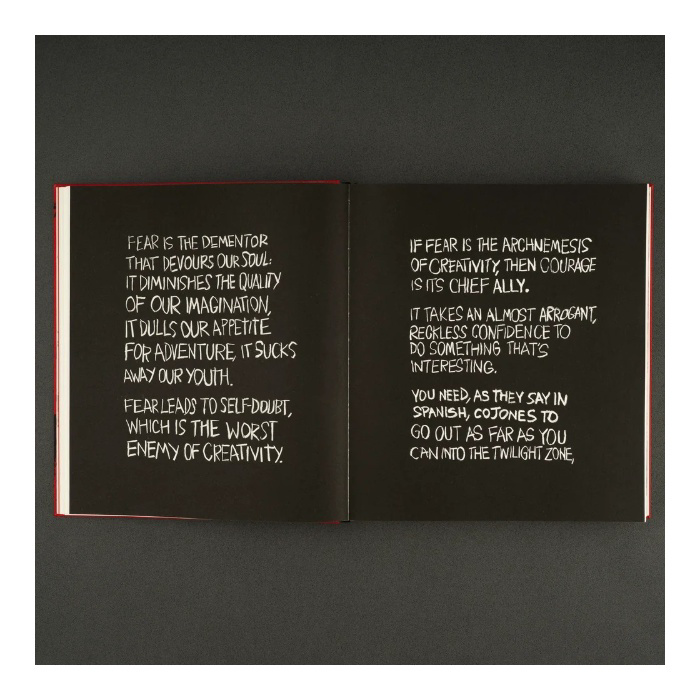 FEAR IS THE DEMENTOR
THAT DEVOURS OUR SOUL:
IT DIMINISHES THE QUALITY
OF OUR IMAGINATION,
IT DULLS OUR APPETITE
FOR ADVENTURE, IT SUCKS
AWAY OUR YOUTH.
FEAR LEADS TO SELF-DOUBT,
WHICH IS THE WORST
ENEMY OF CREATIVITY.
IF FEAR IS THE ARCHNEMESIS
OF CREATIVITY, THEN COURAGE
IS ITS CHIEF ALLY.
IT TAKES AN ALMOST ARROGANT,
RECKLESS CONFIDENCE TO
DO SOMETHING THAT'S
INTERESTING.
YOU NEED, AS THEY SAY IN
SPANISH, COJONES TO
GO OUT AS FAR AS YOU
CAN INTO THE TWILIGHT ZONE,